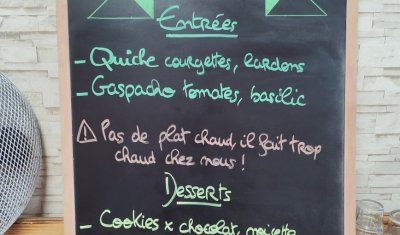 Entrées
- Quiche courgettes, lardons
- Gaspacho tomates, basilic
⚠ Pas de plat chaud, il fait trop
chaud chez nous !
Desserts
- Cookies x chocolat, noisette